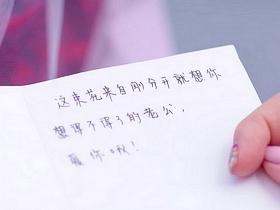 这束花来自刚分开就想你
想得不得了的老公，
爱你啾！